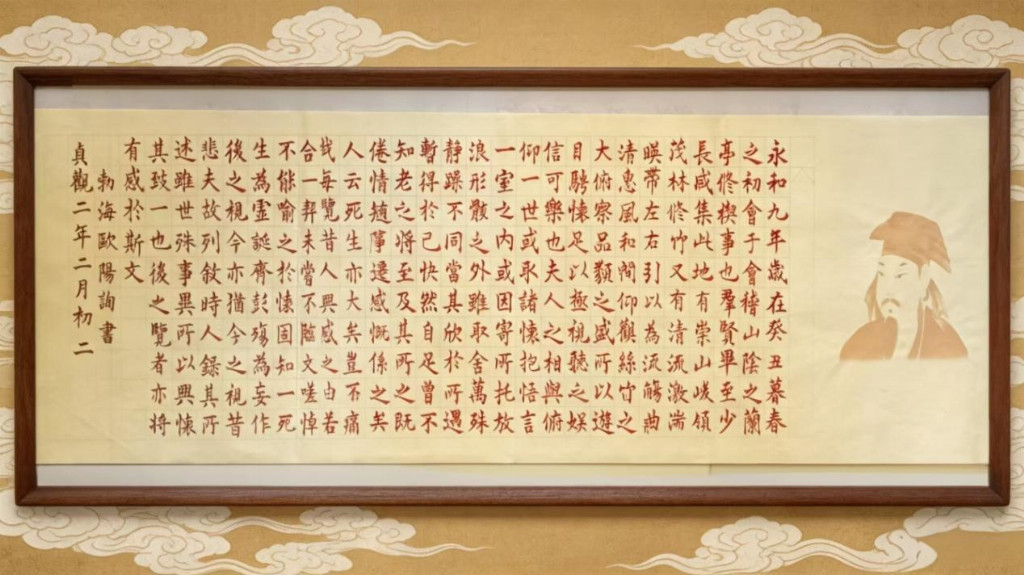 永和九年歲在癸丑暮春
之初會于會稽山陰之蘭
亭修禊事也羣賢畢至少
長咸集此地有崇山峻領
茂林修竹又有清流激湍
暎帶左右引以為流觴曲
清惠風和仰觀絲竹之
大俯察品類之盛所以遊
目騁懷足以極視聽之娛
信可樂也夫人之相與俯
仰一世或取諸懷抱悟言
一室之內或因寄所托放
浪形骸之外雖取舍萬殊
靜躁不同當其欣於所遇
暫得於己快然自足曾不
知老之將至及其所之既
倦情隨事遷感慨係之矣
人云死生亦大矣豈不痛
哉每覽昔人興感之由若
合一契未嘗不臨文嗟悼
不能喻之於懷固知一死
生為虛誕齊彭殤為妄作
後之視今亦猶今之視昔
悲夫故列敘時人錄其所
述雖世殊事異所以興懷
其致一也後之覽者亦將
有感於斯文
勃海歐陽詢書
貞觀二年二月初二